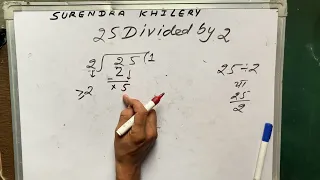 SURENDRA KHILERY
25 Divided by 2
2 ) 25 ( 1
- 2
≥2 × 5
25 ÷ 2
या
25
2